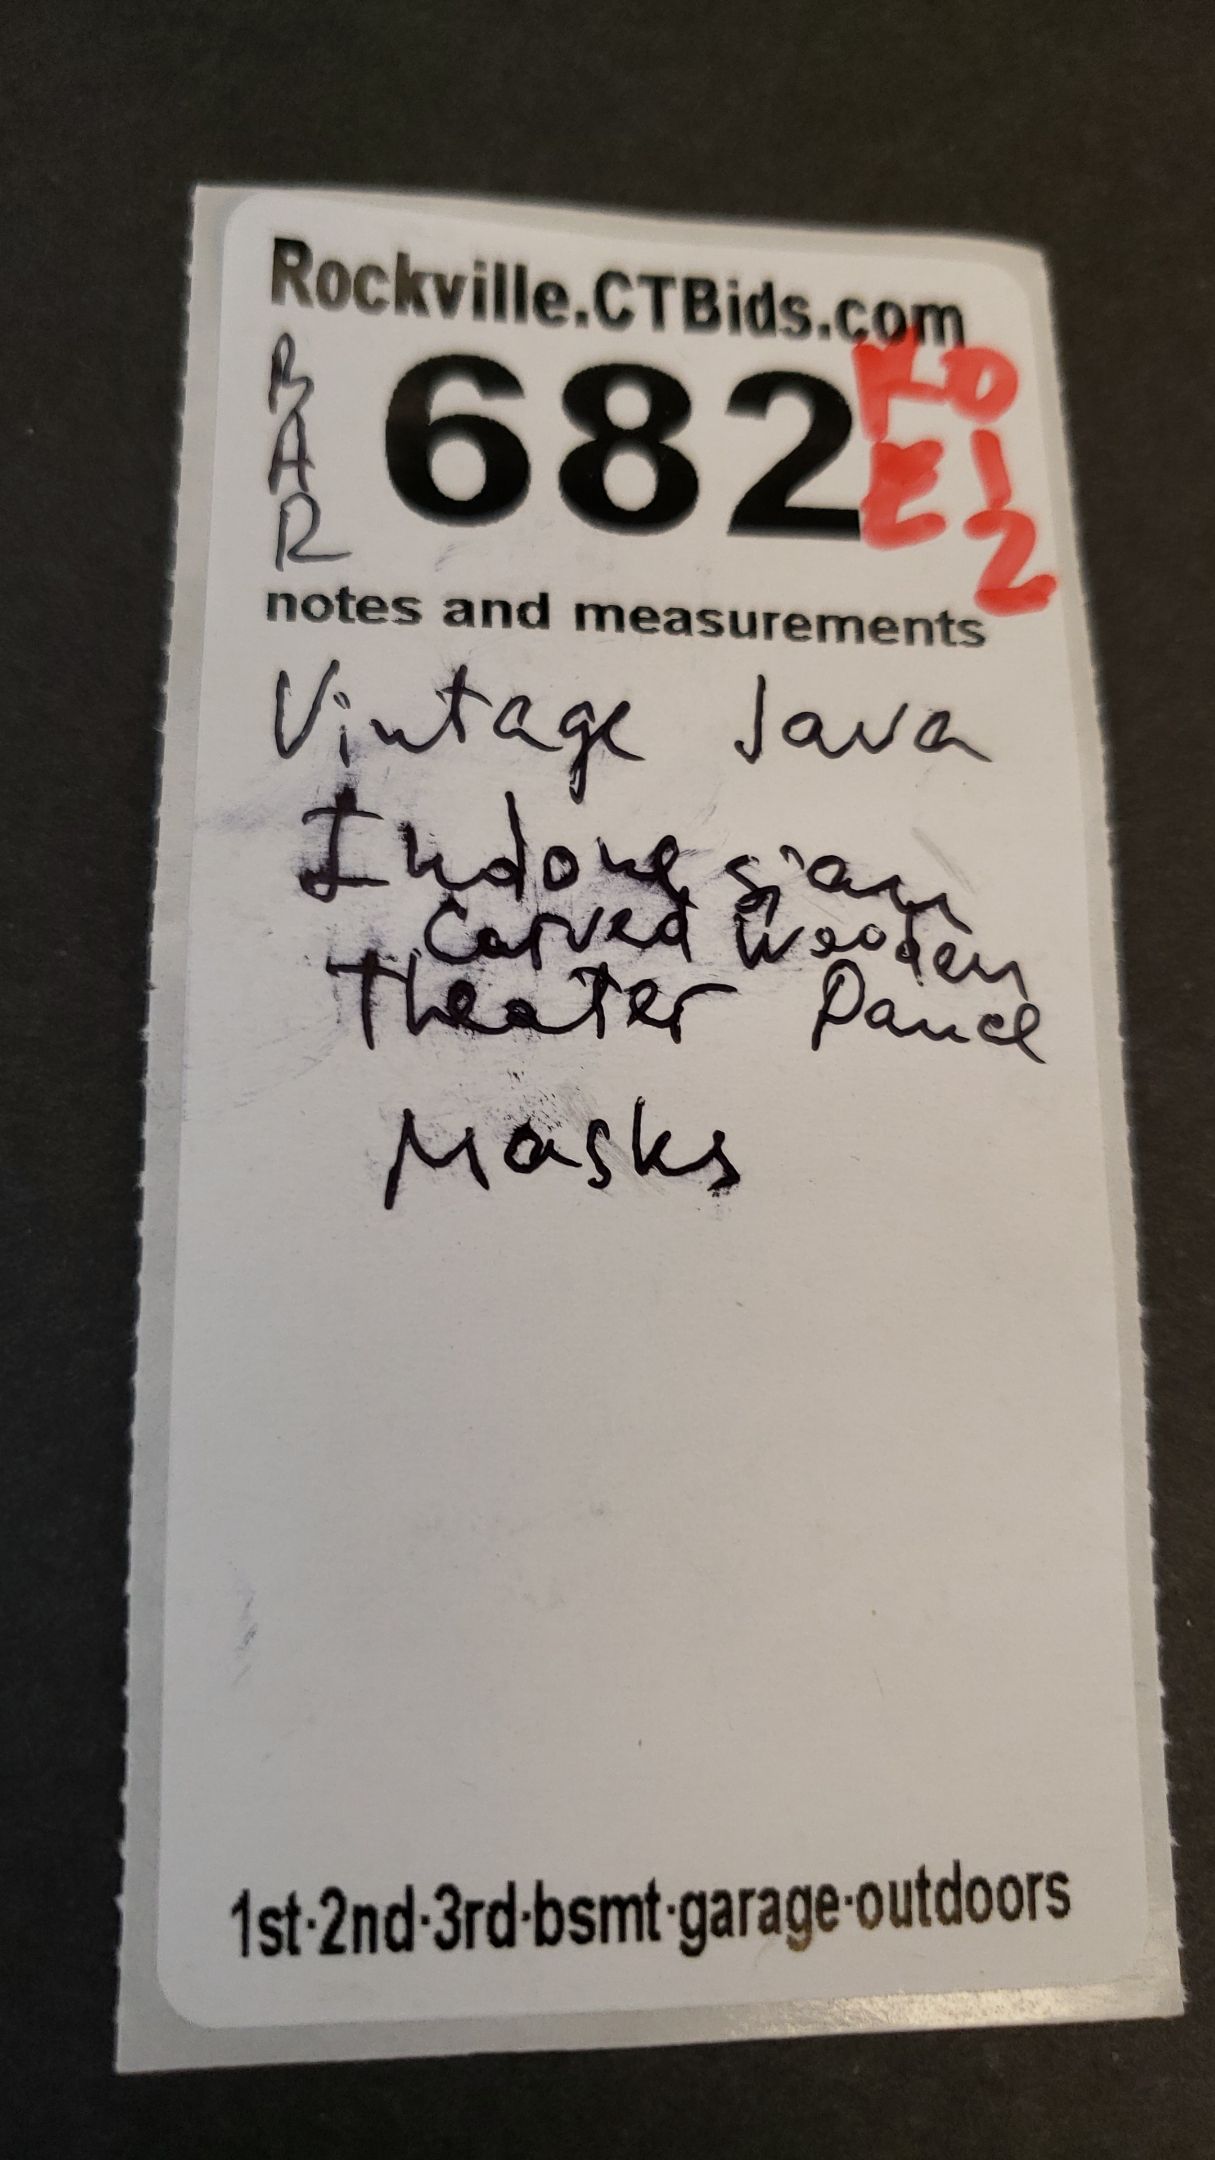 Rockville.CTBids.com
BAR
682
notes and measurements
Vintage Java
Indonesian
Carved Wooden
Theater Dance
Masks
1st·2nd·3rd·bsmt·garage·outdoors